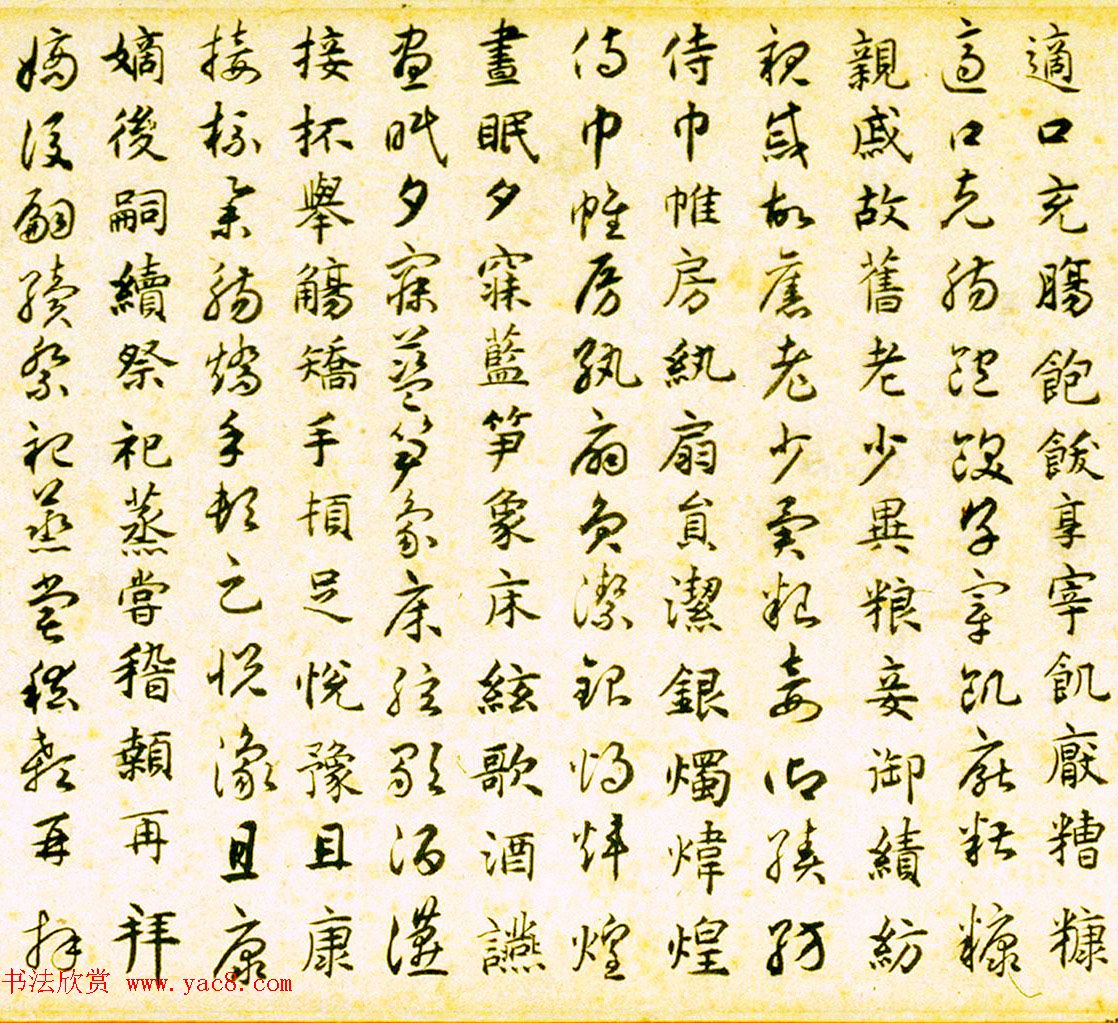 適口充腸飽飫享宰飢厭糟糠
適口充腸飽飫享宰飢厭糟糠
親戚故舊老少異粮妾御績紡
親戚故舊老少異粮妾御績紡
侍巾帷房紈扇員潔銀燭煒煌
侍巾帷房紈扇員潔銀燭煒煌
晝眠夕寐藍笋象床絃歌酒讌
晝眠夕寐藍笋象床絃歌酒讌
接杯舉觴矯手頓足悅豫且康
接杯舉觴矯手頓足悅豫且康
嫡後嗣續祭祀蒸嘗稽顙再拜
嫡後嗣續祭祀蒸嘗稽顙再拜
书法欣赏 www.yac8.com